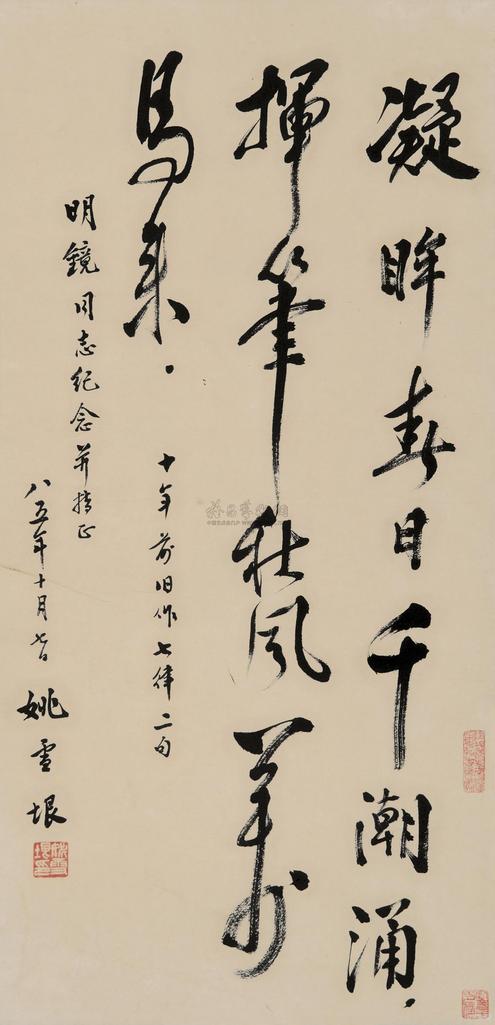 凝眸春日千潮涌，
揮筆秋风萬
馬来。
十年前旧作七律二句
明鏡同志纪念并指正
八五年十月七日
姚雪垠